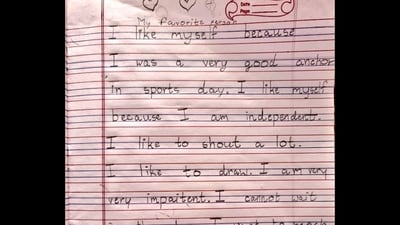 Date
Page
My favorite person
I like myself because
I was a very good anchor
in sports day. I like myself
because I am independent.
I like to shout a lot.
I like to draw. I am very
very impaitent. I cannot wait